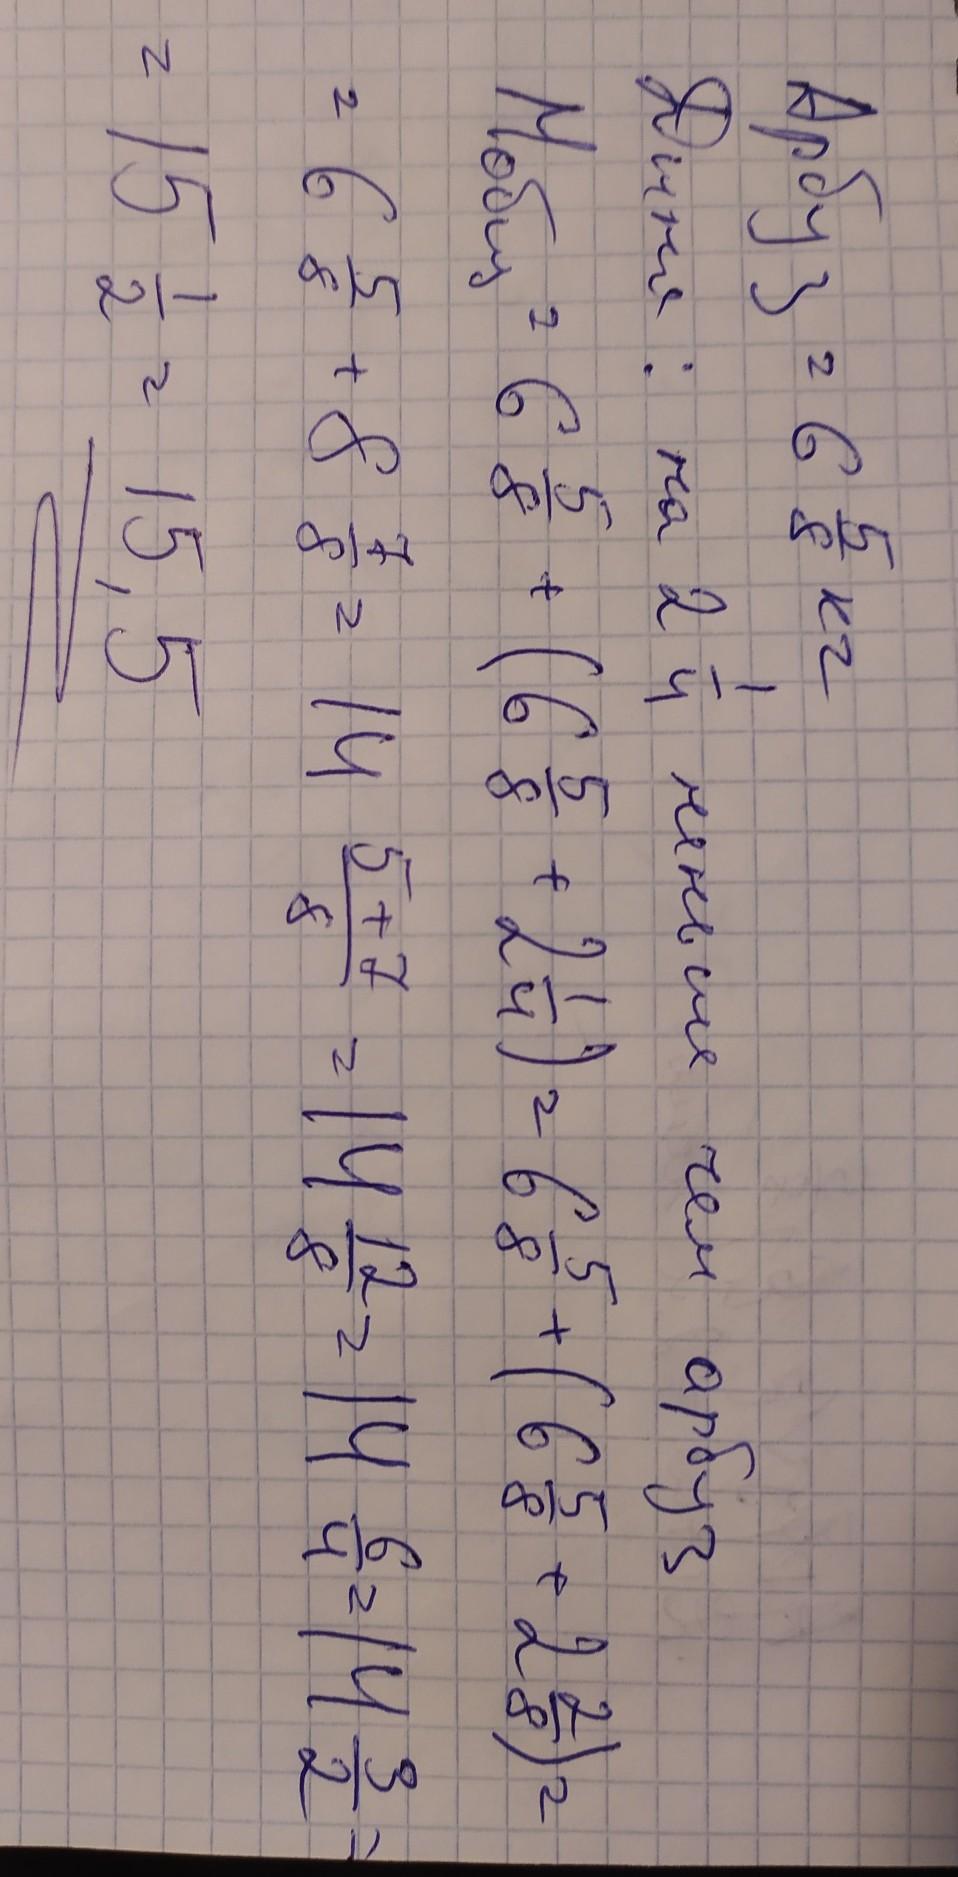 Арбуз = 6 5/8 кг
Дыня : на 2 1/4 меньше чем арбуз
Мобщ = 6 5/8 + (6 5/8 + 2 1/4) = 6 5/8 + (6 5/8 + 2 2/8) =
= 6 5/8 + 8 7/8 = 14 5+7/8 = 14 12/8 = 14 6/4 = 14 3/2 =
= 15 1/2 = 15,5